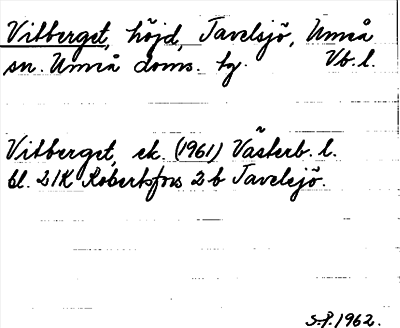 Vitberget, höjd, Tavelsjö, Umeå
sn. Umeå doms. hg. Vb. l.
Vitberget, ek. (1961) Västerb. l.
bl. 21K Robertsfors 2b Tavelsjö.
S.P. 1962.